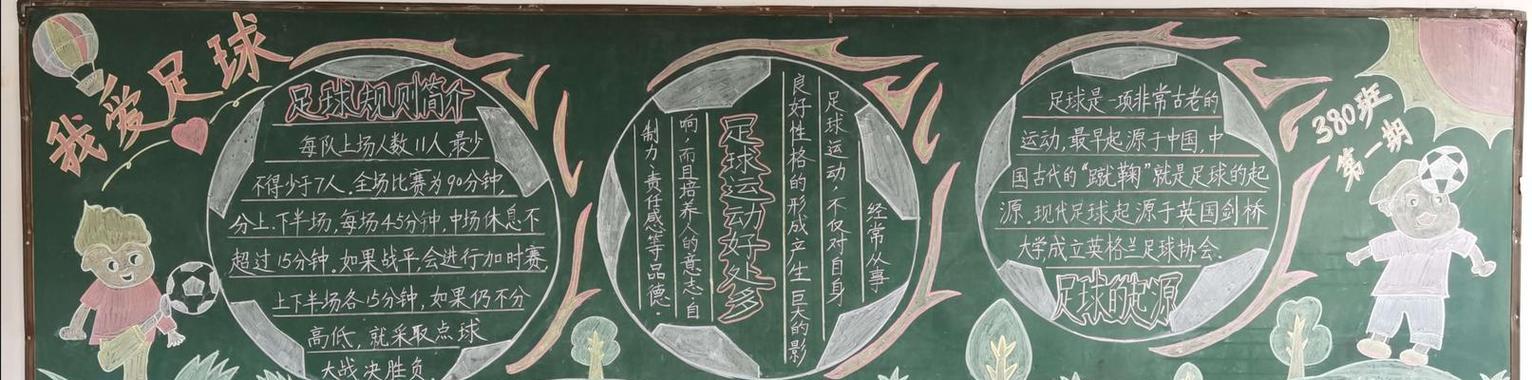 我爱足球
足球规则简介
每队上场人数11人,最少
不得少于7人.全场比赛为90分钟,
分上.下半场,每场45分钟,中场休息不
超过15分钟.如果战平,会进行加时赛,
上下半场各15分钟,如果仍不分
高低,就采取点球
大战决胜负.
足球运动好处多
经常从事
足球运动,不仅对自身
良好性格的形成产生巨大的影
响,而且培养人的意志,自
制力,责任感等品德.
足球是一项非常古老的
运动,最早起源于中国,中
国古代的“蹴鞠”就是足球的起
源.现代足球起源于英国剑桥
大学,成立英格兰足球协会.
足球的起源
380班
第一期